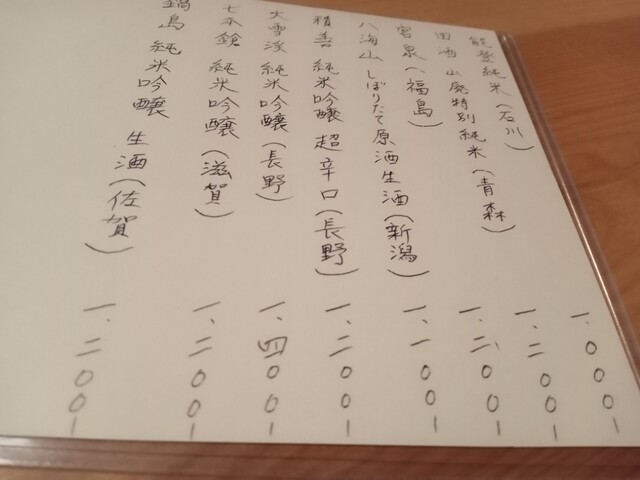 能登純米(石川) 一、〇〇〇ー
田酒 山廃特別純米(青森) 一、二〇〇ー
宮泉(福島) 一、二〇〇ー
八海山 しぼりたて原酒生酒(新潟) 一、一〇〇ー
積善 純米吟醸 超辛口(長野) 一、二〇〇ー
大雪渓 純米吟醸(長野) 一、四〇〇ー
七本鎗 純米吟醸(滋賀) 一、二〇〇ー
鍋島 純米吟醸 生酒(佐賀) 一、二〇〇ー